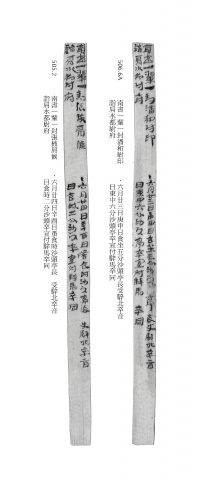 506.6A
南書一輩一封潘和尉印
詣肩水都尉府
·六月廿三日庚申日食坐五分沙頭亭長受騂北卒音
日東中六分沙頭亭卒宣付騂馬卒同
505.2
南書一輩一封張掖肩候
詣肩水都尉府
·六月廿四日辛酉日蚤食時沙頭亭長 受騂北卒音
日食時二分沙頭亭卒宣付騂馬卒同